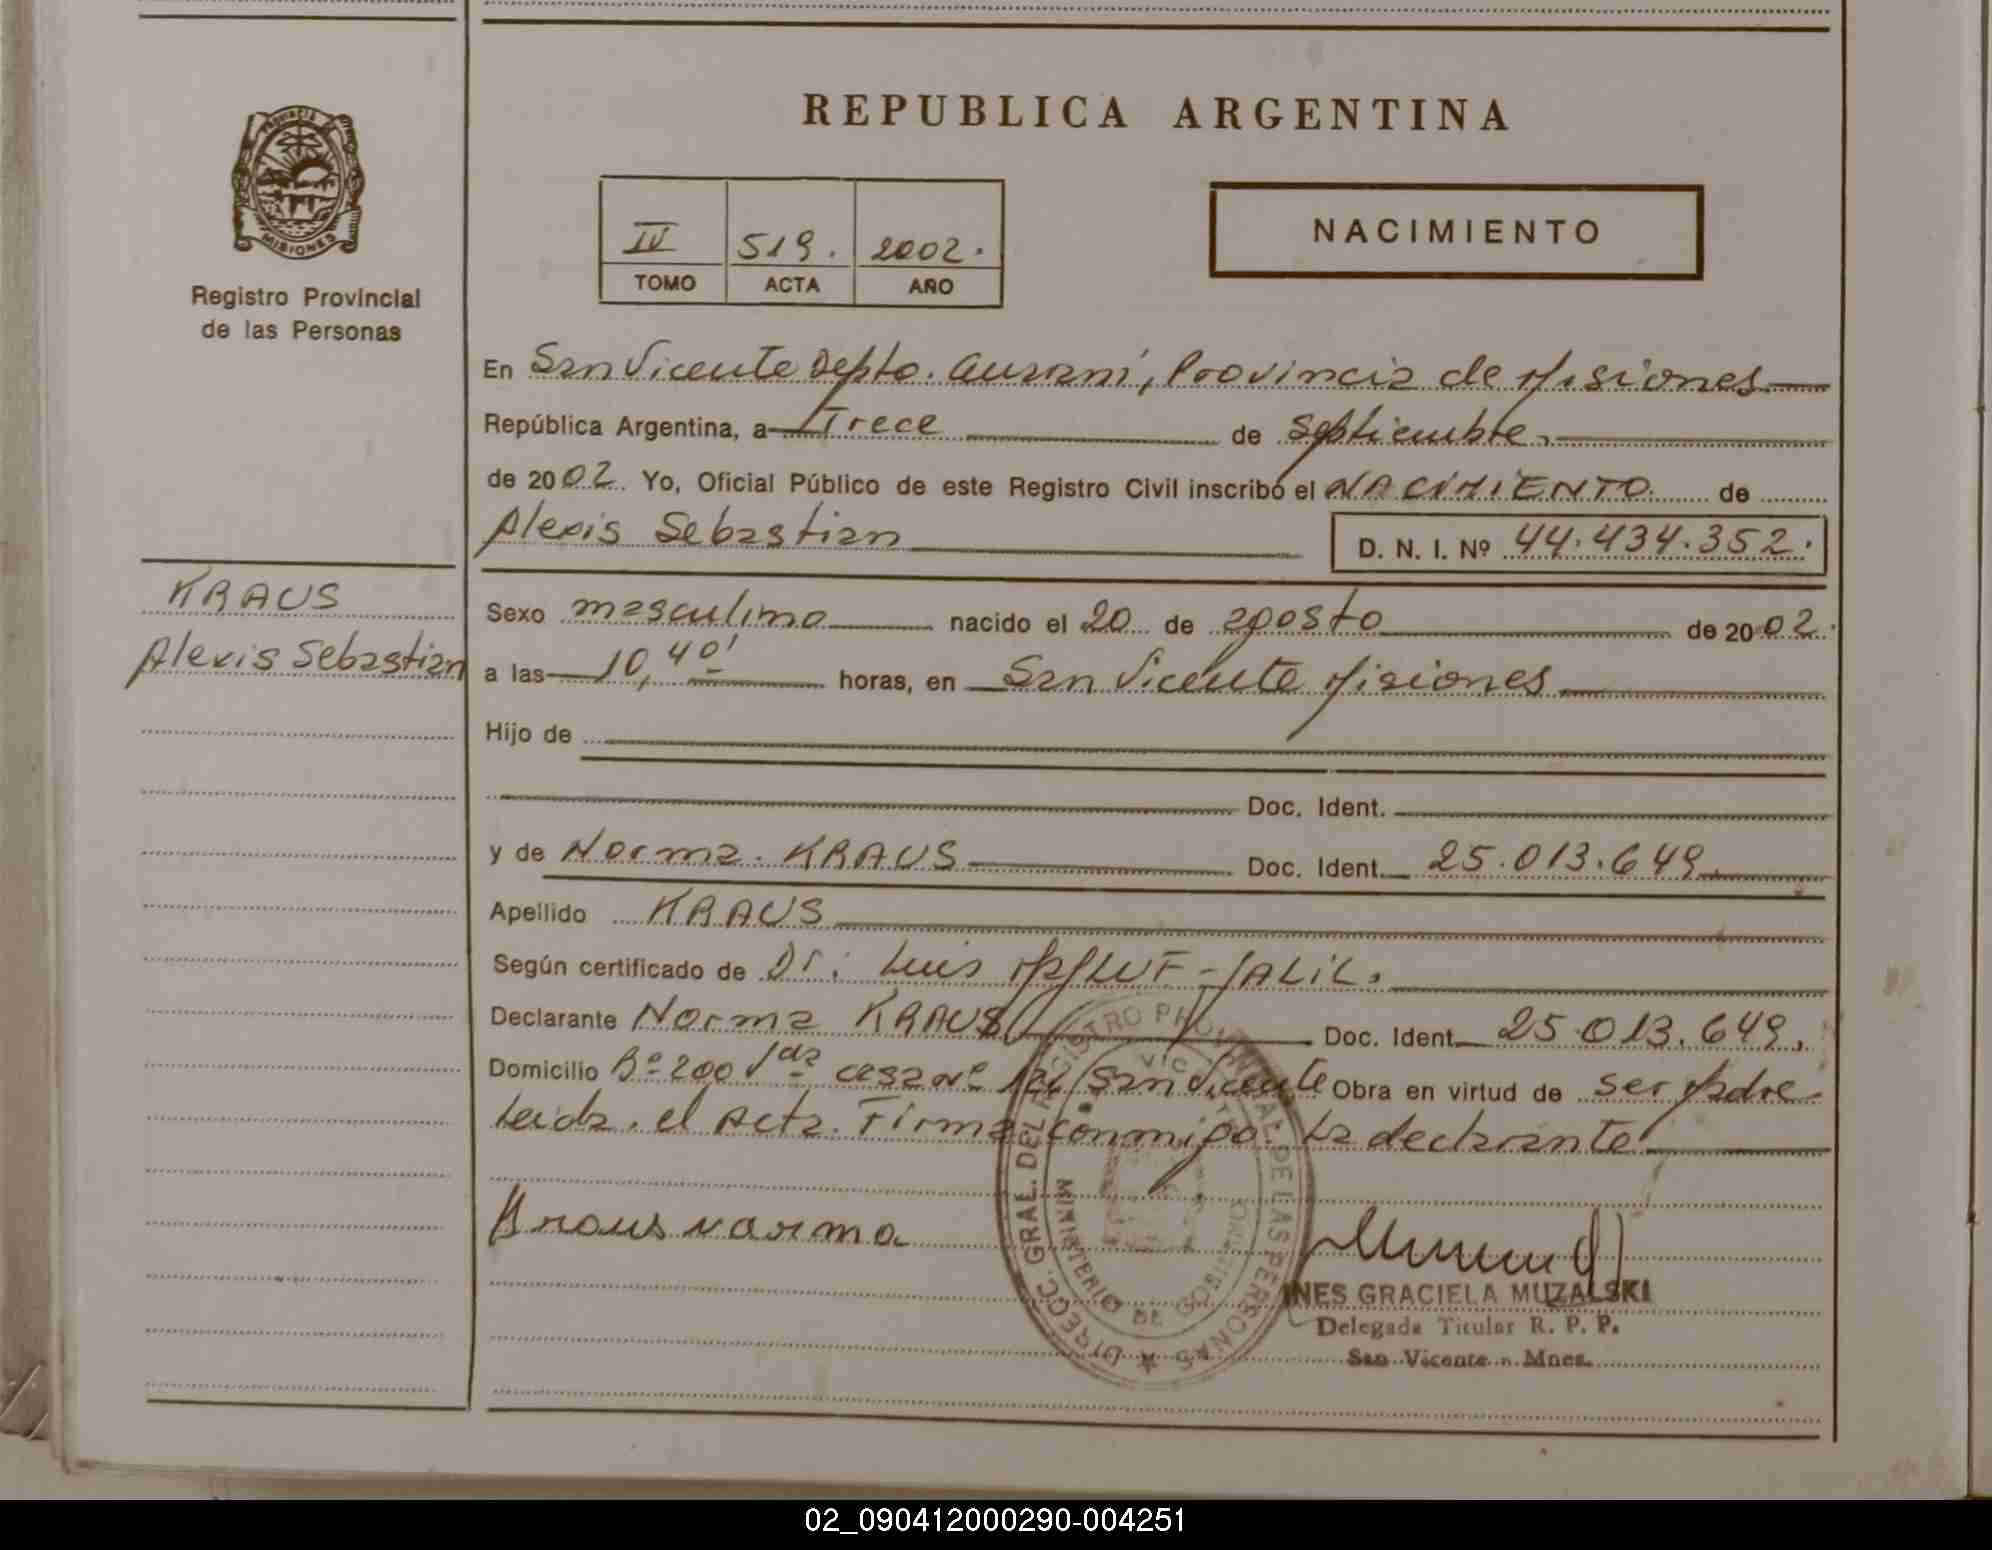 REPUBLICA ARGENTINA
PROVINCIA DE
MISIONES
Registro Provincial
de las Personas
IV 519. 2002.
TOMO ACTA AÑO
NACIMIENTO
En San Vicente Depto. Guaraní, Provincia de Misiones
República Argentina, a Trece de Septiembre.
de 2002. Yo, Oficial Público de este Registro Civil inscribo el NACIMIENTO de
Alexis Sebastian D. N. I. Nº 44.434.352.
KRAUS
Alexis Sebastian
Sexo masculino nacido el 20 de agosto de 2002.
a las 10,40' horas, en San Vicente Misiones
Hijo de
Doc. Ident.
y de Norma. KRAUS Doc. Ident. 25.013.649.
Apellido KRAUS
Según certificado de Dr. Luis JALIL.
Declarante Norma KRAUS Doc. Ident. 25.013.649.
Domicilio Bº 200 Vdas casa Nº San Vicente Obra en virtud de ser Madre
Leida. el Acta. Firma conmigo. La declarante
Kraus norma
DIRECC. GRAL. DEL REGISTRO PROVINCIAL DE LAS PERSONAS
MINISTERIO DE
INES GRACIELA MUZALSKI
Delegada Titular R. P. P.
San Vicente - Mnes.
02_090412000290-004251